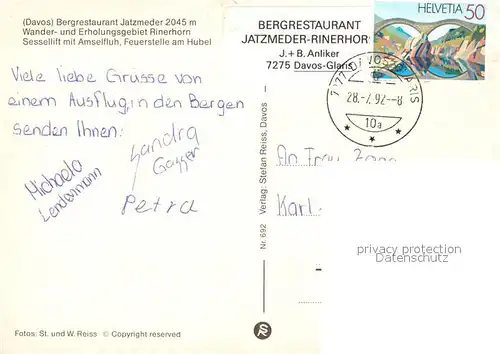 (Davos) Bergrestaurant Jatzmeder 2045 m
Wander- und Erholungsgebiet Rinerhorn
Sessellift mit Amselfluh, Feuerstelle am Hubel
BERGRESTAURANT
JATZMEDER-RINERHORN
J. + B. Anliker
7275 Davos-Glaris
HELVETIA 50
28.-7.92-8
10a
Viele liebe Grüsse von
einem Ausflug, in den Bergen
senden Ihnen:
Sandra
Michaela
Petra
An Frau
Karl
privacy protection
Datenschutz
Nr. 692 Verlag: Stefan Reiss, Davos
Fotos: St. und W. Reiss © Copyright reserved